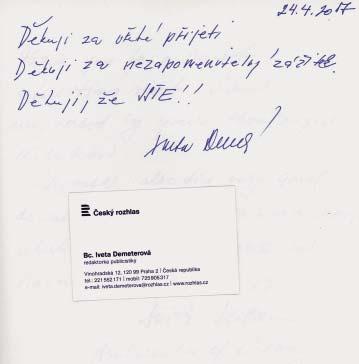 24.4.2017
Děkuji za vřelé přijetí.
Děkuji za nezapomenutelný zážitek.
Děkuji, že JSTE!!
Český rozhlas
Bc. Iveta Demeterová
redaktorka publicistiky
Vinohradská 12, 120 99 Praha 2 | Česká republika
tel.: 221 552 171 | mobil: 725 805 317
e-mail: iveta.demeterova@rozhlas.cz | www.rozhlas.cz